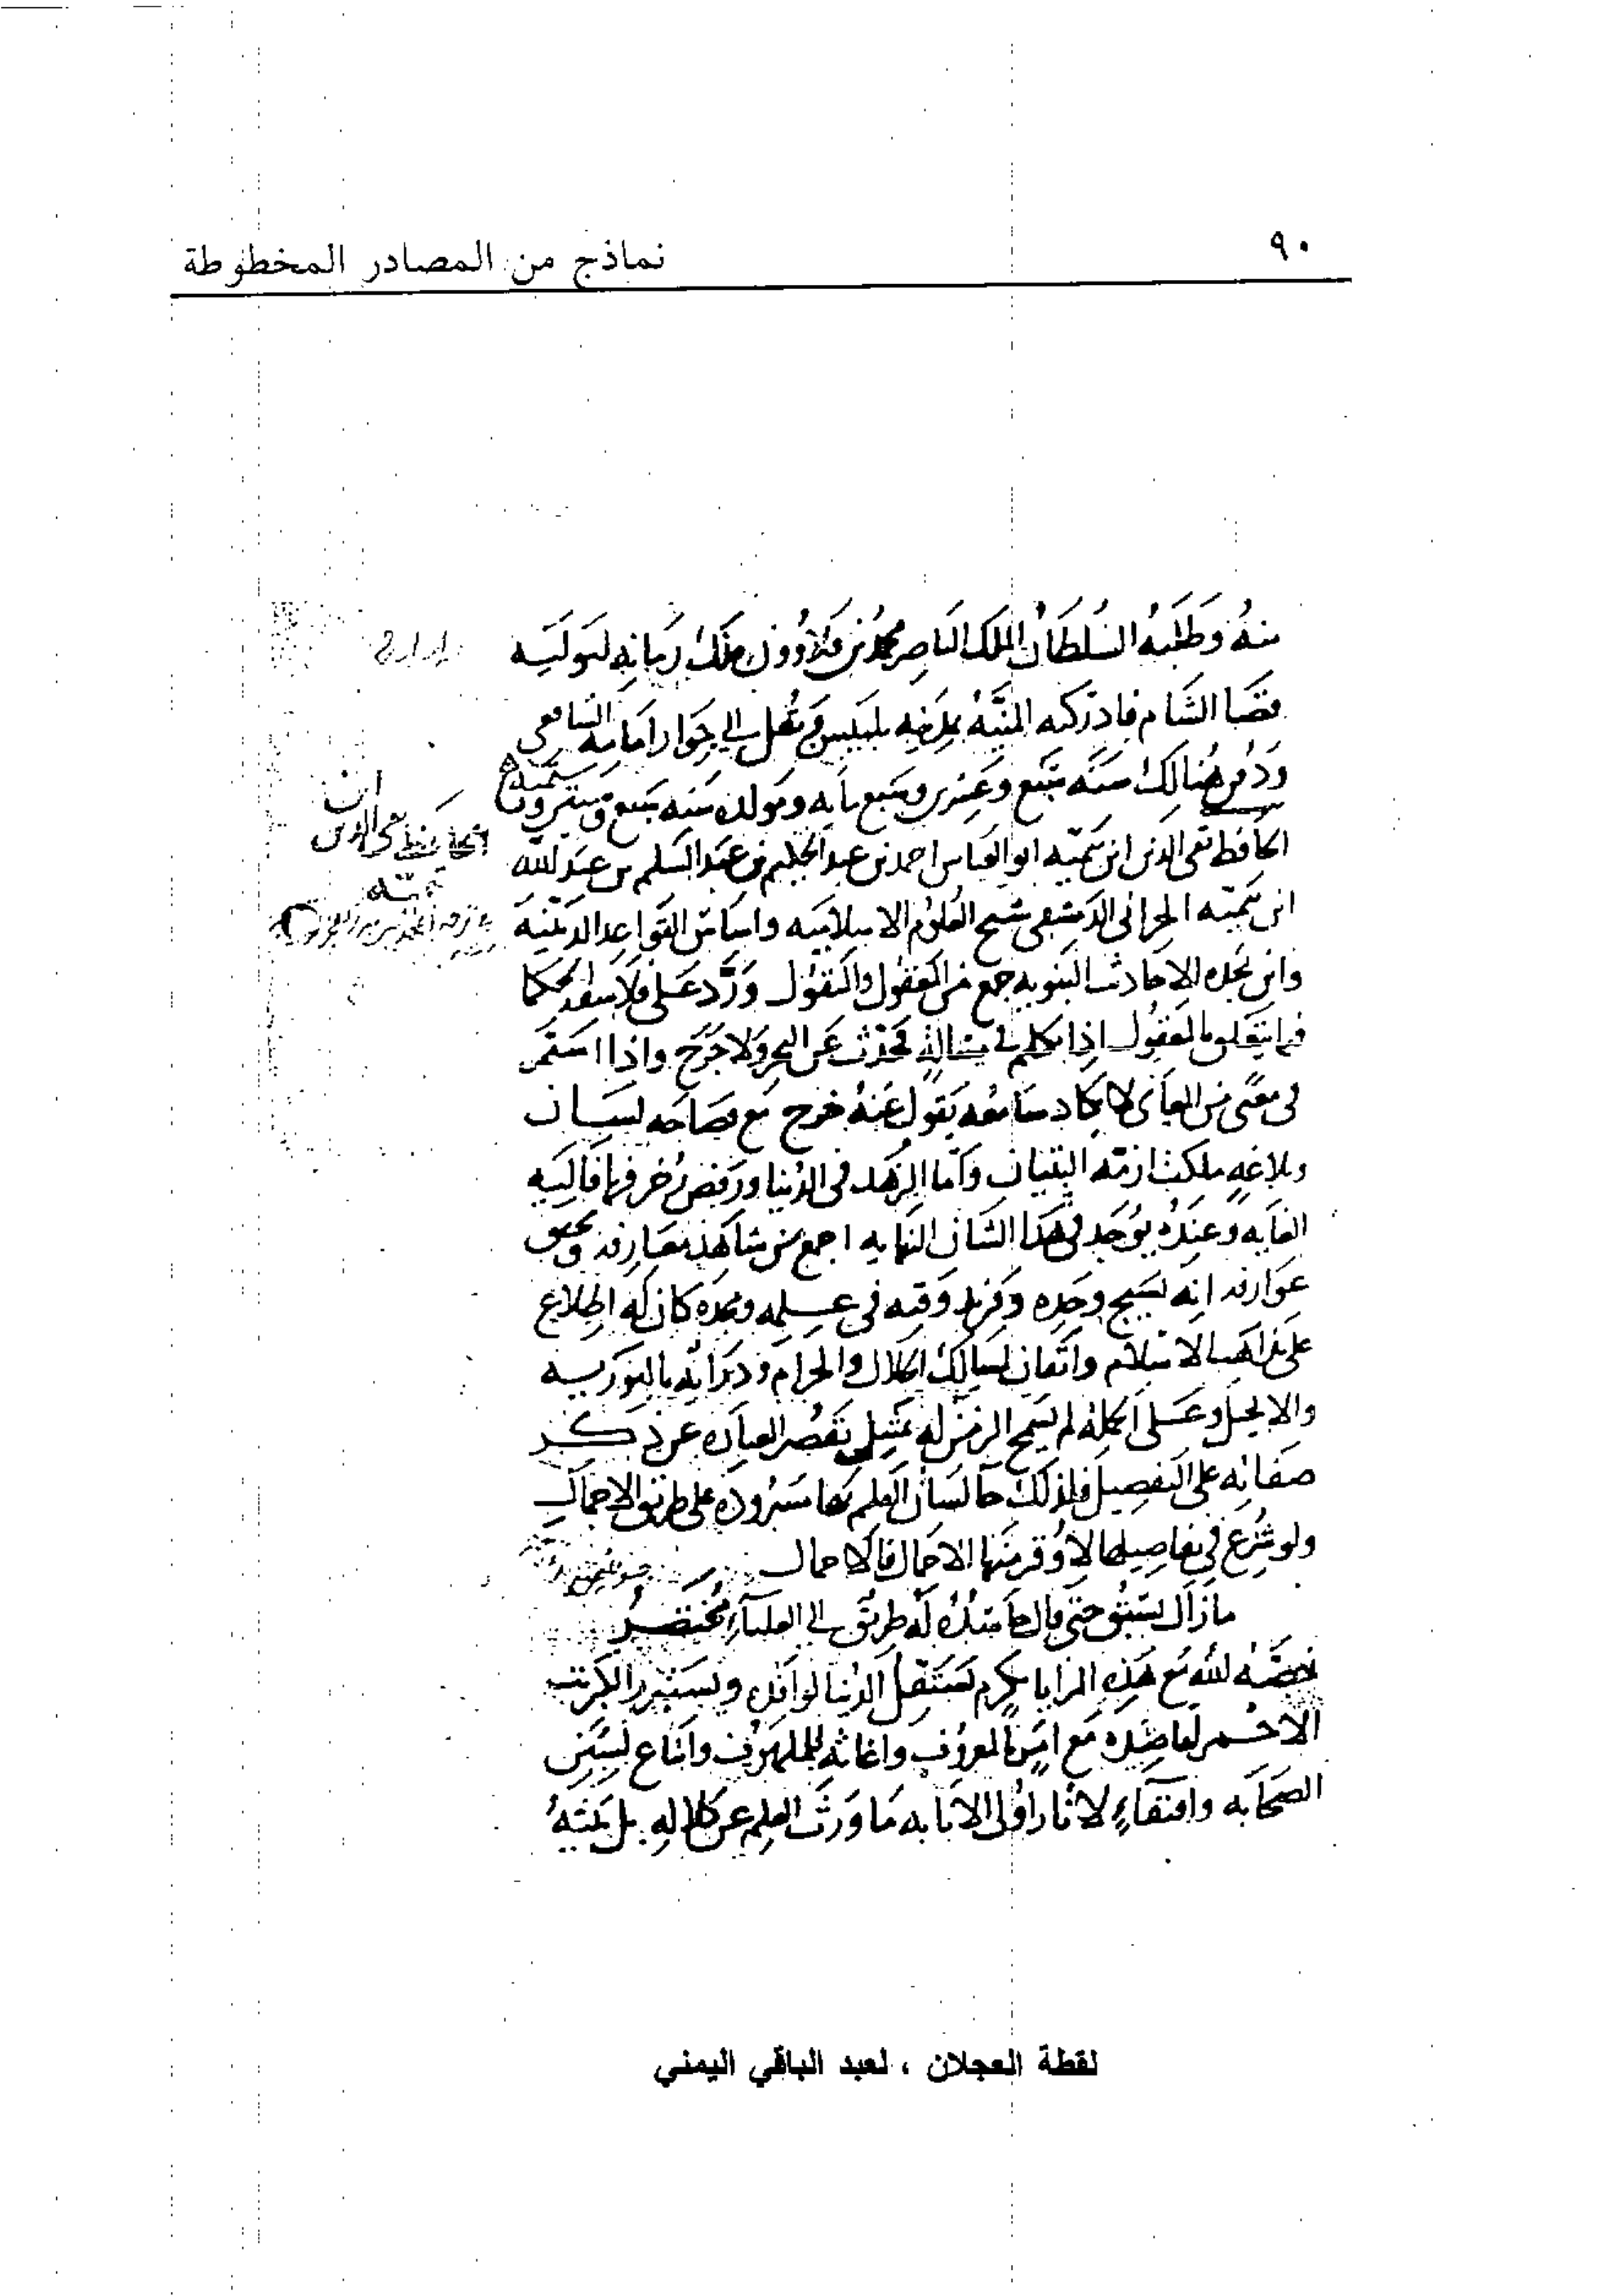 ٩٠
نماذج من المصادر المخطوطة
منهُ وطَلَبَهُ السُلطَانُ الملك الناصر محمد بن قلاوون ملك زمانه ليوليه
قضا الشام فادركته المنيّهُ بمرضه ببلبيس ونُقل الى جوار امامه الشافعي
ودفن هنالك سنه سَبع وعشرين وسبع مايه ومولده سنه سبع وستين
الحافظ تقي الدين ابن تيميّه ابو العباس احمد بن عبد الحليم بن عبد السلم بن عبد الله
ابن تيميّه الحراني الدمشقي شيخ العلوم الاسلاميه واساس القواعد الدينيه
وابن بجده الاحاديث النبويه جمع من المعقول والمنقول وَرَدَّ عَلى فلاسفه الحكما
فيما يتعلق بالمعقول اذا تكلم في مسالةٍ فحدّث عَن البحر ولا حَرَج واذا استمر
في معنًى من المعاني لا يكاد سامعه يقول عنهُ خرج مع فصاحه لسان
وبلاغهٍ ملكت ازمّه التبيان وامّا الزهد في الدُنيا ورفض زُخرفها فاليه
الغايه وعندهُ يوجد في هذا الشان النهايه اجمع من شاهد معارفه وتحقق
عوارفه انه نسيج وحده وفريد وقته في عِلمه ومجده كان له اطلاع
على مذاهب الاسلام واتقان لمسالك الحلال والحرام ودرايه بالتوريه
والانجيل وعلى الجملة لم يسمح الزمن له بمثيل تقصُر العباره عن ذكر
صفاته على التفصيل فلذلك جا لسان القلم بها مسروده على طريق الاجمال
ولو شُرع في تفاصيلها لاوقر منها الاحمال فالاحمال
ما زال يسبق حتى قال حاسدُهُ لهُ طريق الى العلياءِ مُختصرُ
خصّهُ الله مع هذه المزايا بكرم يستقل الدنيا لوافده ويستنزر الكبريت
الاحمر لقاصده مع امرٍ بالمعروف واغاثةٍ للملهوف واتباع لسنن
الصحابه واقتفاءٍ لاثار اولى الانابه مَا وَرَث العلم عن كلاله بل بيته
ابن
الحافظ تقي الدين
تيميّه
لقطة العجلان ، لعبد الباقي اليمني